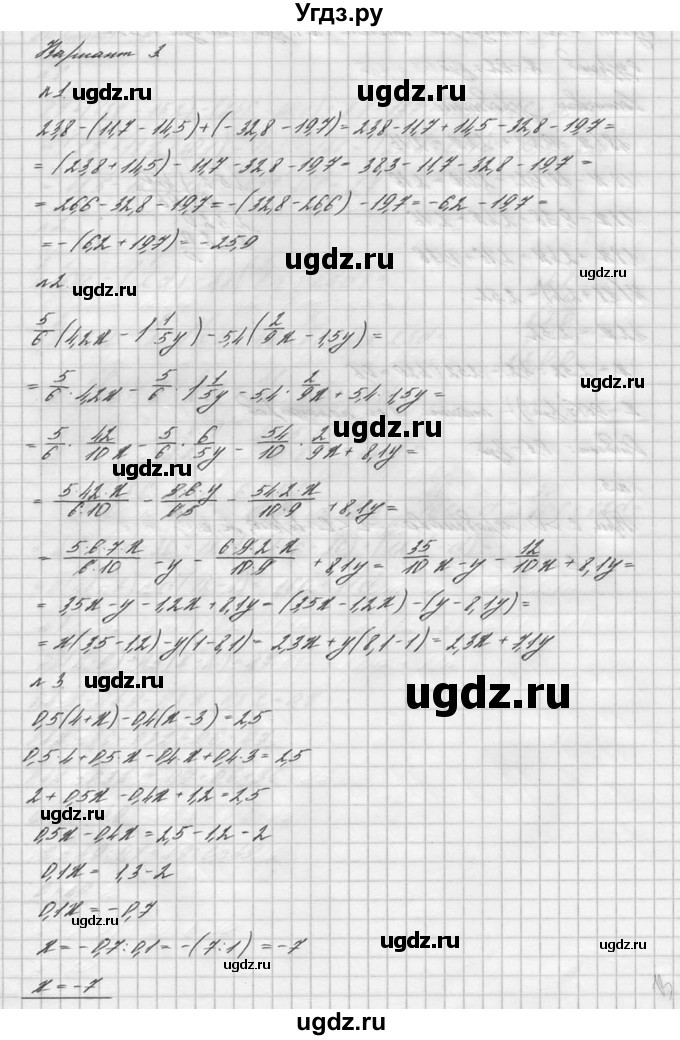 Угдз.ру
Вариант 3
№1. ugdz.ru ugdz.ru
23,8-(11,7-14,5)+(-32,8-19,7)=23,8-11,7+14,5-32,8-19,7=
=(23,8+14,5)-11,7-32,8-19,7=38,3-11,7-32,8-19,7=
=26,6-32,8-19,7=-(32,8-26,6)-19,7=-6,2-19,7=
=-(6,2+19,7)=-25,9
ugdz.ru ugdz.ru
№2 ugdz.ru
5/6(4,2x-1 1/5y)-5,4(2/9x-1,5y)=
=5/6·4,2x-5/6·1 1/5y-5,4·2/9x+5,4·1,5y=
ugdz.ru
ugdz.ru
=5/6·42/10x-5/6·6/5y-54/10·2/9x+8,1y=
ugdz.ru
=5·42·x/6·10-5·6·y/6·5-54·2·x/10·9+8,1y=
=5·6·7·x/6·10-y-6·9·2·x/10·9+8,1y=35/10x-y-12/10x+8,1y=
=3,5x-y-1,2x+8,1y=(3,5x-1,2x)-(y-8,1y)=
=x(3,5-1,2)-y(1-8,1)=2,3x+y(8,1-1)=2,3x+7,1y
№3 ugdz.ru ugdz.ru
0,5(4+x)-0,4(x-3)=2,5
0,5·4+0,5·x-0,4·x+0,4·3=2,5
2+0,5x-0,4x+1,2=2,5
ugdz.ru ugdz.ru
0,5x-0,4x=2,5-1,2-2
0,1x=1,3-2
0,1x=-0,7
x=-0,7:0,1=-(7:1)=-7
ugdz.ru ugdz.ru ugdz.ru
x=-7
ugdz.ru
ugdz.ru